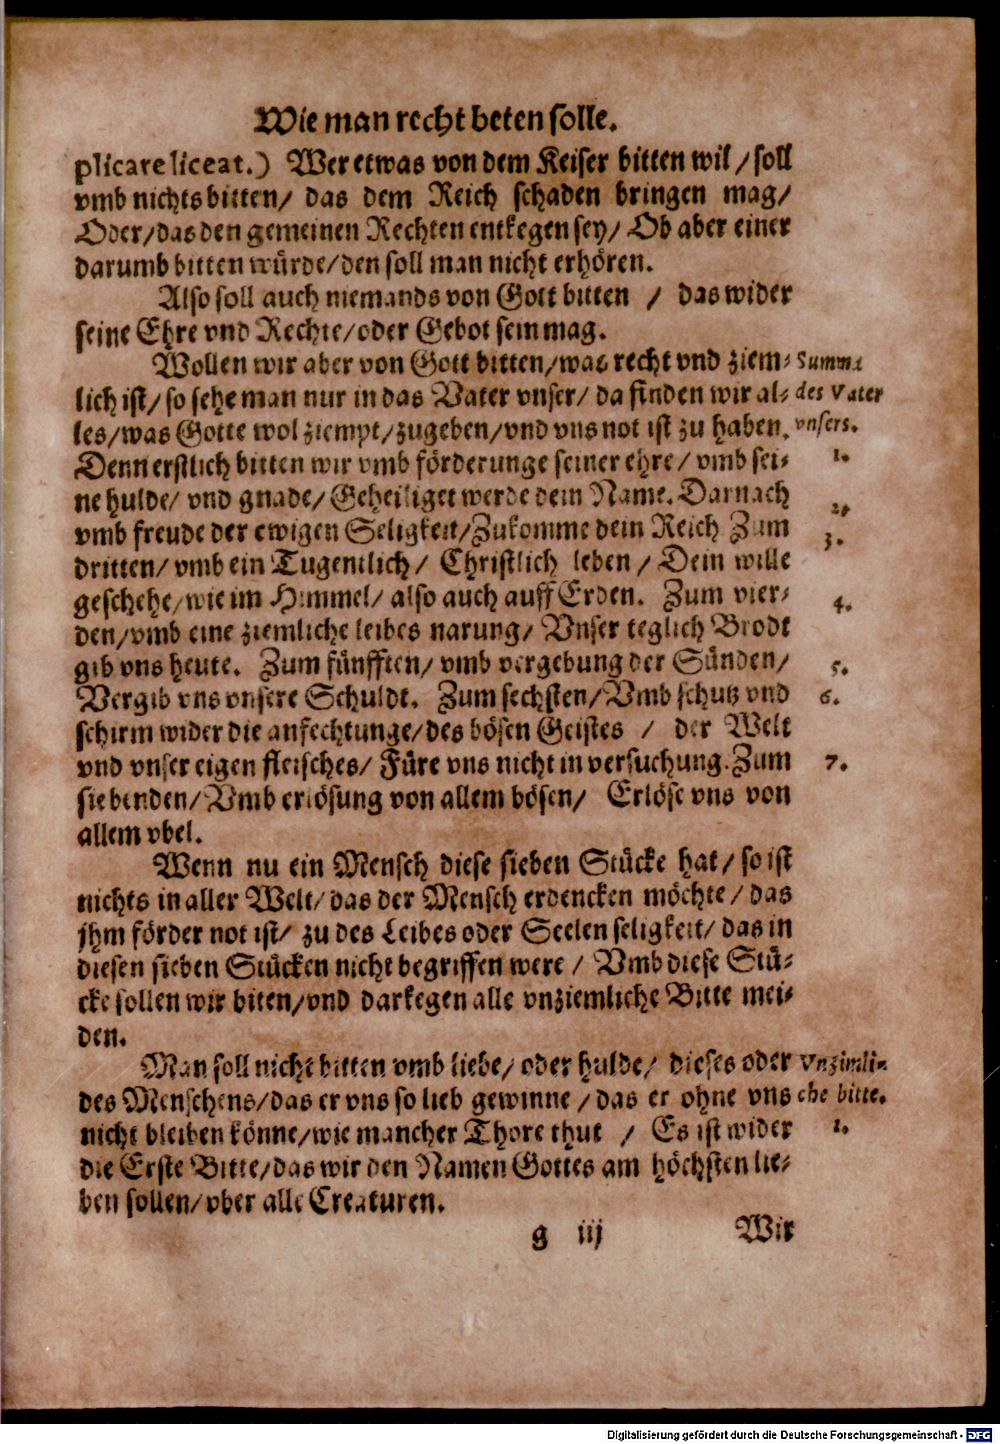 Wie man recht beten solle.
plicare liceat.) Wer etwas von dem Keiser bitten wil/ soll
vmb nichts bitten/ das dem Reich schaden bringen mag/
Oder/ das den gemeinen Rechten entkegen sey/ Ob aber einer
darumb bitten würde/ den soll man nicht erhören.
Also soll auch niemands von Gott bitten / das wider
seine Ehre vnd Rechte/ oder Gebot sein mag.
Wollen wir aber von Gott bitten/ was recht vnd ziem-
Summa
lich ist/ so sehe man nur in das Vater vnser/ da finden wir al-
des Vater
les/ was Gotte wol ziempt/ zugeben/ vnd vns not ist zu haben.
vnsers.
Denn erstlich bitten wir vmb förderunge seiner ehre/ vmb sei-
1.
ne hulde/ vnd gnade/ Geheiliget werde dein Name. Darnach
vmb freude der ewigen Seligkeit/ Zukomme dein Reich Zum
2.
dritten/ vmb ein Tugentlich/ Christlich leben / Dein wille
3.
geschehe/ wie im Himmel/ also auch auff Erden. Zum vier-
4.
den/ vmb eine ziemliche leibes narung/ Vnser teglich Brodt
gib vns heute. Zum fünfften/ vmb vergebung der Sünden/
5.
Vergib vns vnsere Schuldt. Zum sechsten/ Vmb schutz vnd
6.
schirm wider die anfechtunge/ des bösen Geistes / der Welt
vnd vnser eigen fleisches/ Füre vns nicht in versuchung. Zum
7.
siebenden/ Vmb erlösung von allem bösen/ Erlöse vns von
allem vbel.
Wenn nu ein Mensch diese sieben Stücke hat/ so ist
nichts in aller Welt/ das der Mensch erdencken möchte/ das
jhm förder not ist/ zu des Leibes oder Seelen seligkeit/ das in
diesen sieben Stücken nicht begriffen were / Vmb diese Stü-
cke sollen wir biten/ vnd darkegen alle vnziemliche Bitte mei-
den.
Man soll nicht bitten vmb liebe/ oder hulde/ dieses oder
Vnzimli-
des Menschens/ das er vns so lieb gewinne / das er ohne vns
che bitte.
nicht bleiben könne/ wie mancher Thore thut / Es ist wider
1.
die Erste Bitte/ das wir den Namen Gottes am höchsten lie-
ben sollen/ vber alle Creaturen.
g iij
Wir
Digitalisierung gefördert durch die Deutsche Forschungsgemeinschaft - DFG